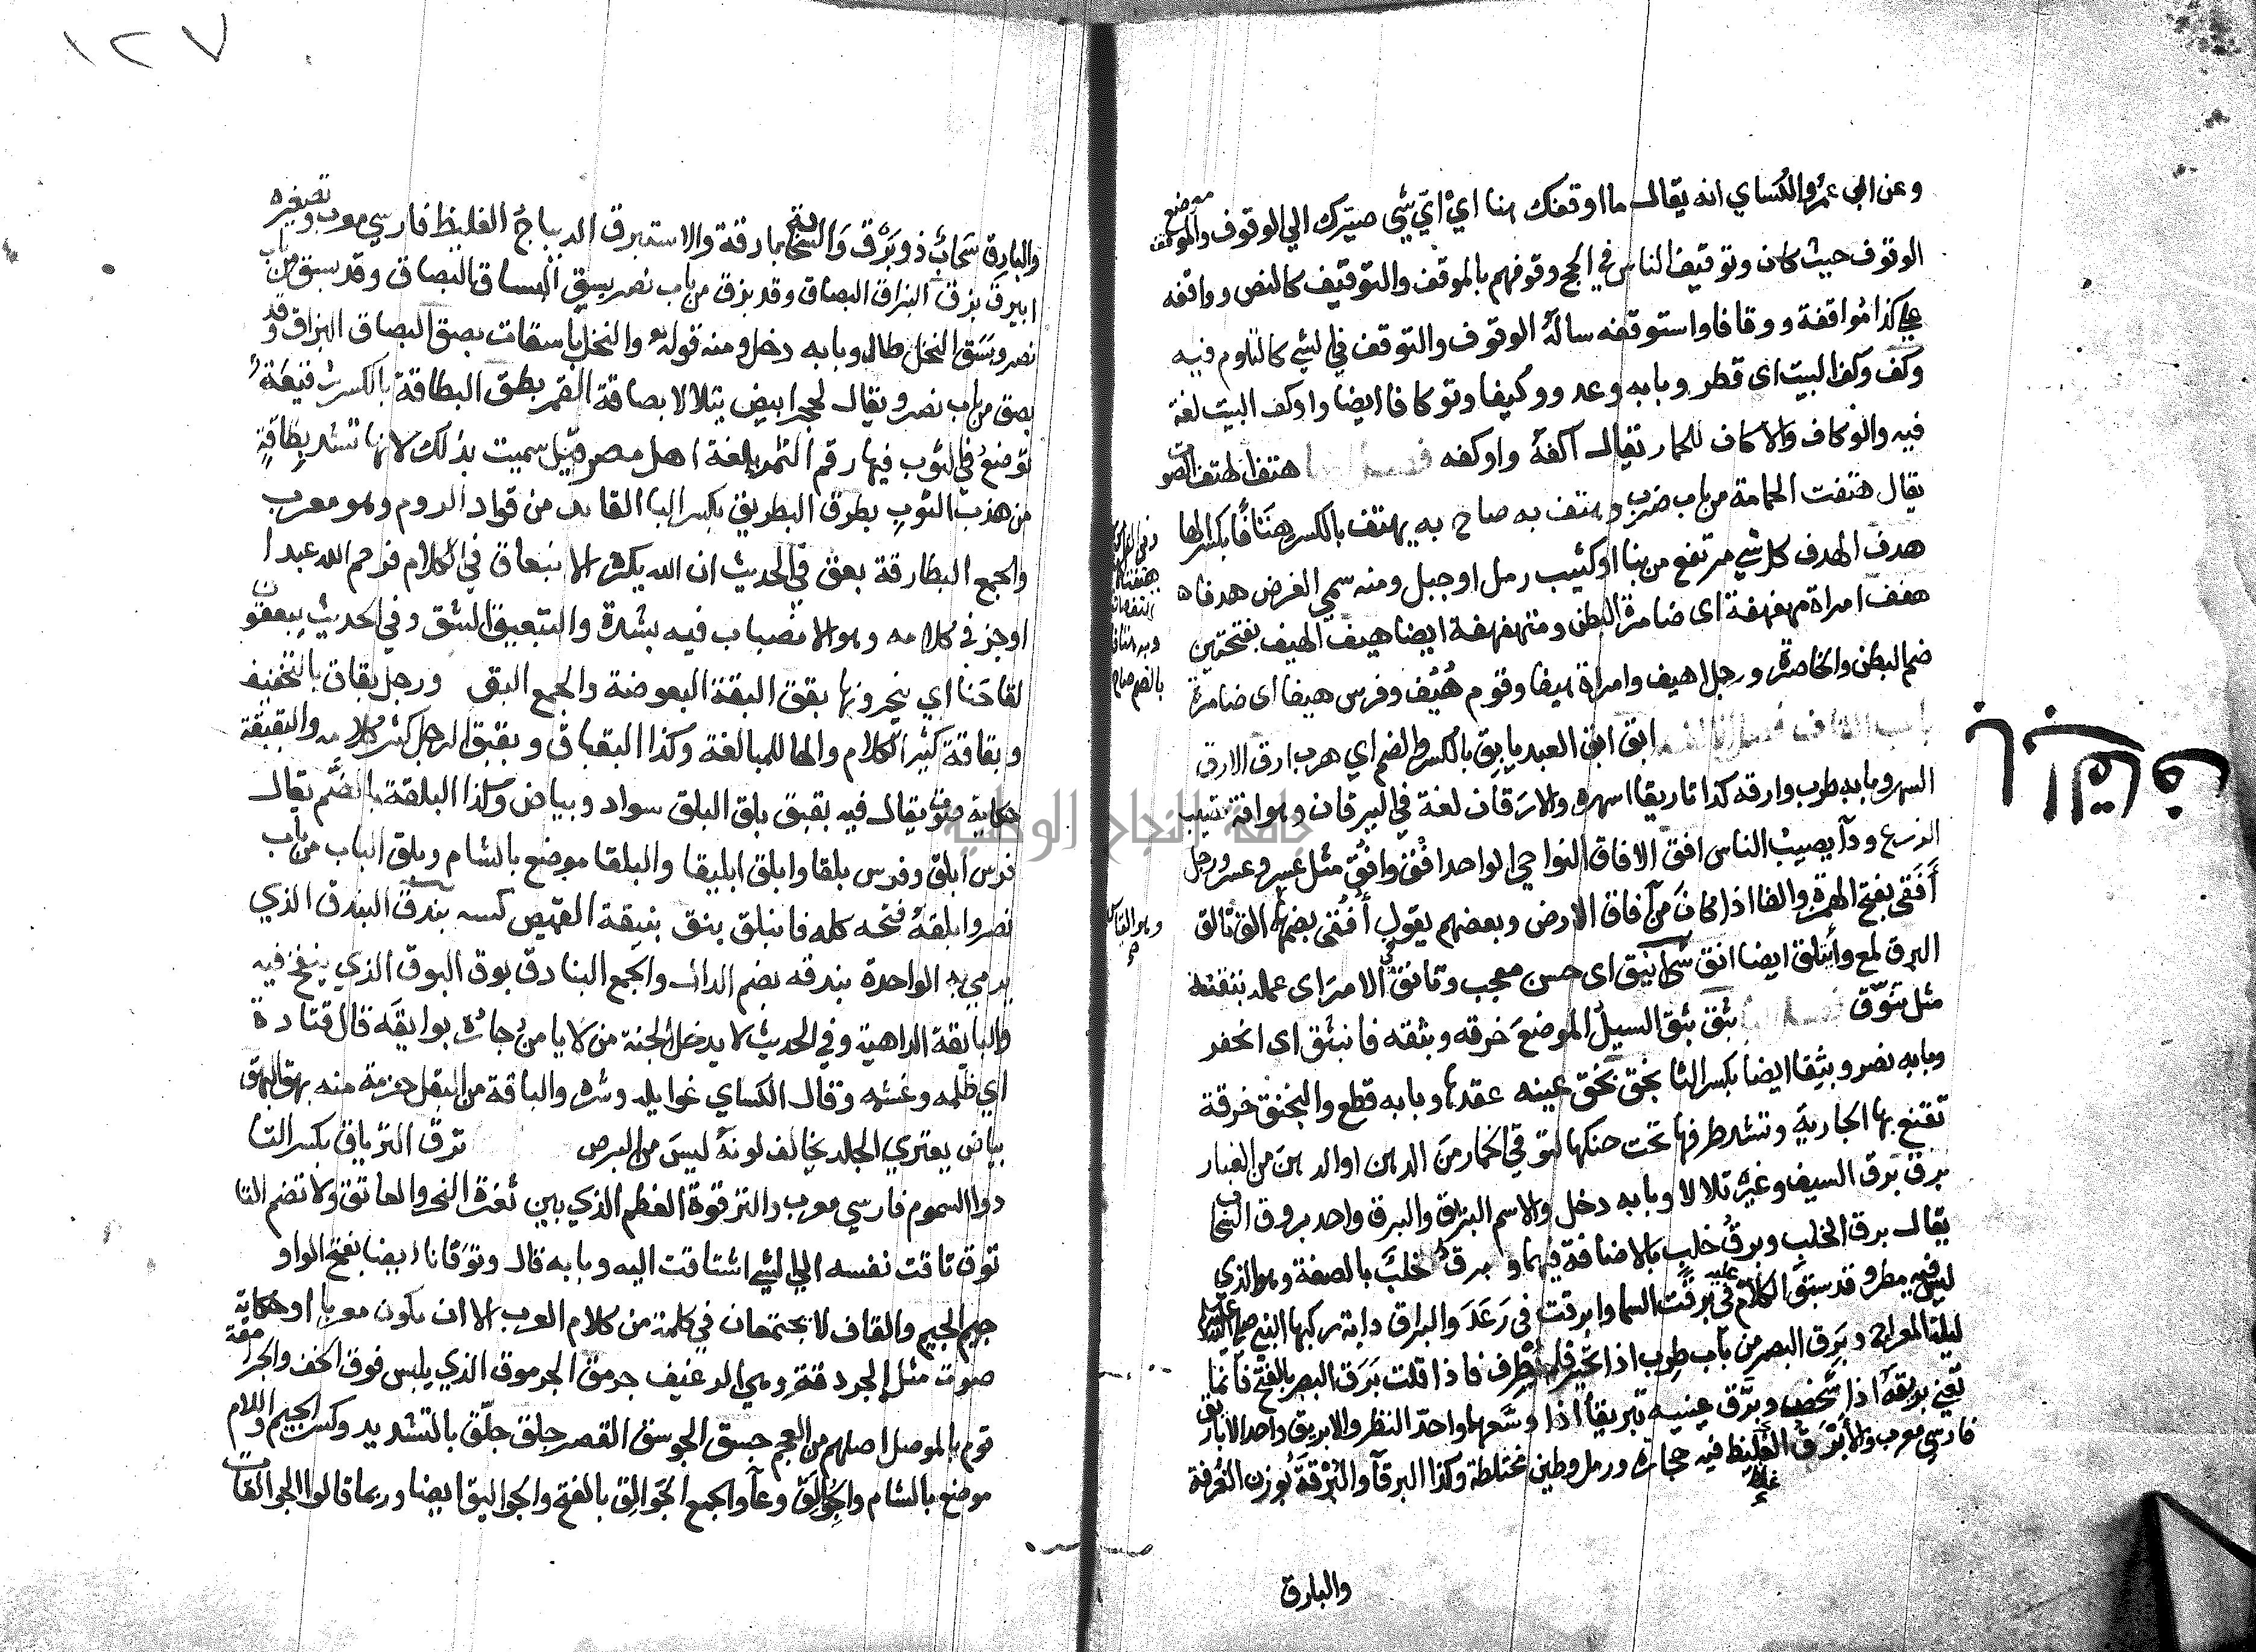 وعن ابي عمرو والكساي انه يقال ما اوقفك هنا اي ايّ شي صيّرك الي الوقوف والموقف موضع
الوقوف حيث كان وتوقيف الناس في الحج وقوفهم بالموقف والتوقيف كالنص وواقفه
علي كذا مُواقفة ووقافا واستوقفه سالهُ الوقوف والتوقف في الشي كالتلوم فيه
وكف وكف البيت اى قطر وبابه وعد ووكيفا وتوكافا ايضا واوكف البيت لغة
فيه والوكاف والاكاف للحمار يقال آكفهُ واوكفه هتف الهتف الصوت
يقال هتفت الحمامة من باب ضرب وهتف به صاح به يهتف بالكسر هتافًا بكسر الها
هدف الهدف كل شي مرتفع من بنا او كثيب رمل او جبل ومنه سمي الغرض هدفا
هفف امراة مهفهفة اى ضامرة البطن ومنه هفهفة ايضا هيف الهيف بفتحتين
ضم البطن والخاصرة ورجل اهيف وامراة هيفا وقوم هُيْف وفرس هيفا اى ضامرة
باب القاف فصل الالف ابق ابق العبد يابق بالكسر والضم اي هرب ارق الارق
السهر وبابه طرب وارقه كذا تاريقا اسهره والارَقان لغة في اليرقان وهو افة تصيب
الزرع ودآ يصيب الناس افق الافاق النواحي الواحد افُق وافْق مثل عسر وعسر ورجل
أَفَقى بفتح الهمزة والفا اذا كان من آفاق الارض وبعضهم يقول أُفُقى بضمها الق تالق
البرق لمع وأتلق ايضا انق شي انيق اى حسن معجب وتانق في الامر اى عمله بنيقة
مثل تنوّق بثق بثق السيل الموضع خرقه وبثقه فانبثق اى انحفر
وبابه نصر وبثقا ايضا بكسر البا بخق بخق عينه عقدها وبابه قطع والبخنق خرقة
تقنع بها الجارية وتشد طرفها تحت حنكها لتوقي الخمار من الدهن او الدهن من الغبار
برق برق السيف وغيره تلالا وبابه دخل والاسم البريق والبرق واحد بروق السحاب
يقال برق الخلب وبرقُ خلبٍ بالاضافة فيهما و برقٌ خلبٌ بالصفة وهو الذي
ليس فيه مطر وقد سبق الكلام عليه في برقت السما وابرقت في رَعَدَ والبراق دابة ركبها النبي صلى الله عليه
ليلة المعراج وبَرِق البصر من باب طرب اذا تحير فلم يطرف فاذا قلت بَرَق البصر بالفتح فانما
تعني بريقهُ اذا شخص وبرّق عينيه تبريقا اذا وسّعهما واحدّ النظر والابريق واحد الاباريق
فارسي معرب والابْرَق الغليظ فيه حجارة ورمل وطين مختلطة وكذا البرقآ والبُرْقَة بوزن الغرفة
والبارق
وهو القياس
باب القاف
١٢٧
والبارق سَحاب ذو بَرْق والسحابة بارقة والاستبرق الديباج الغليظ فارسي معرب وتصغيره
ابيرق بزق البزاق البصاق وقد بزق من باب نصر بسق البساق البصاق وقد سبق من باب
نصر وبسَق النخل طال وبابه دخل ومنه قولهُ والنخل باسقات بصق البصاق البزاق وقد
بصق من باب نصر ويقال لحجر ابيض يتلالا بصاقة القمر بطق البطاقة بالكسر رقيعةٌ
توضعُ في الثوب فيها رقم الثمن بلغة اهل مصر قيل سميت بذلك لانها تشد بِطاقةٍ
من هدب الثوب بطرق البطريق بكسر البا القايد من قواد الروم وهو معرب
والجمع البطارقة بعق في الحديث ان الله يكره الانبعاق في الكلام فرحم الله عبدا
اوجز في كلامه وهو الانصباب فيه بشدة والتبعيق الشق وفي الحديث يبعقون
لقاحَنا اي ينحرونها بقق البقة البعوضة والجمع البق ورجل بقاق بالتخفيف
وبقاقة كثير الكلام والها للمبالغة وكذا البقباق وبقبق الرجل كثر كلامه والبقبقة
حكاية صوت يقال فيه بقبق بلق البلق سواد وبياض وكذا البلقة بالضَّم يقال
فرس ابلق وفرس بلقا وابلق ابليقا والبلقا موضع بالشام وبلق الباب من باب
نصر وابلقهُ فتحه كله فانبلق بنق بنيقة القميص كسه بندق البندق الذي
يرمي به الواحدة بندقه بضم الدال والجمع البنادق بوق البوق الذي ينفخ فيه
والبايقة الداهية وفي الحديث لا يدخل الجنة من لا يامن جاره بوايقَه قال قتادة
اي ظلمه وغشمه وقال الكساي غوايله وشره والباقة من البقل حزمة منه بهق البهق
بياض يعتري الجلد يخالف لونهُ ليسَ من البرص ترق الترياق بكسر التا
دوا السموم فارسي معرب والترقوة العظم الذي بين ثغرة النحر والعاتق ولا تضم التا
توق تاقت نفسه الي الشي اشتاقت اليه وبابه قال وتوَقانا ايضا بفتح الواو
جيم الجيم والقاف لا يجتمعان في كلمة من كلام العرب الا ان يكون معربا او حكاية
صوت مثل الجردقة وهي الرغيف جرمق الجرموق الذي يلبس فوق الخف والجرامقة
قوم بالموصل اصلهم من العجم جسق الجوسق القصر جلق جلّق بالتشديد وكسر الجيم واللام
موضع بالشام والجُوالق وعآ والجمع الجَوالِق بالفتح والجواليق ايضا وربما قالوا الجوالقات
جامعة النجاح الوطنية